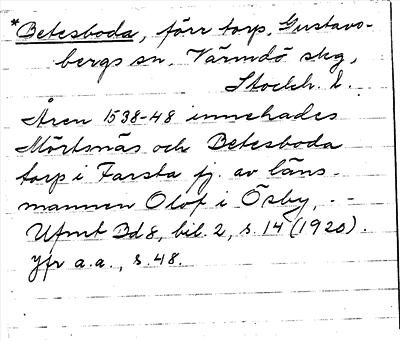 *Betesboda, förr torp, Gustavs-
bergs sn. Värmdö skg,
Stockh. l.
Åren 1538-48 innehades
Mörtsnäs och Betesboda
torp i Farsta fj. av läns-
mannen Olof i Ösby, - -
Ufmt Bd 8, bil. 2, s. 14 (1920).
Jfr a.a., s. 48.